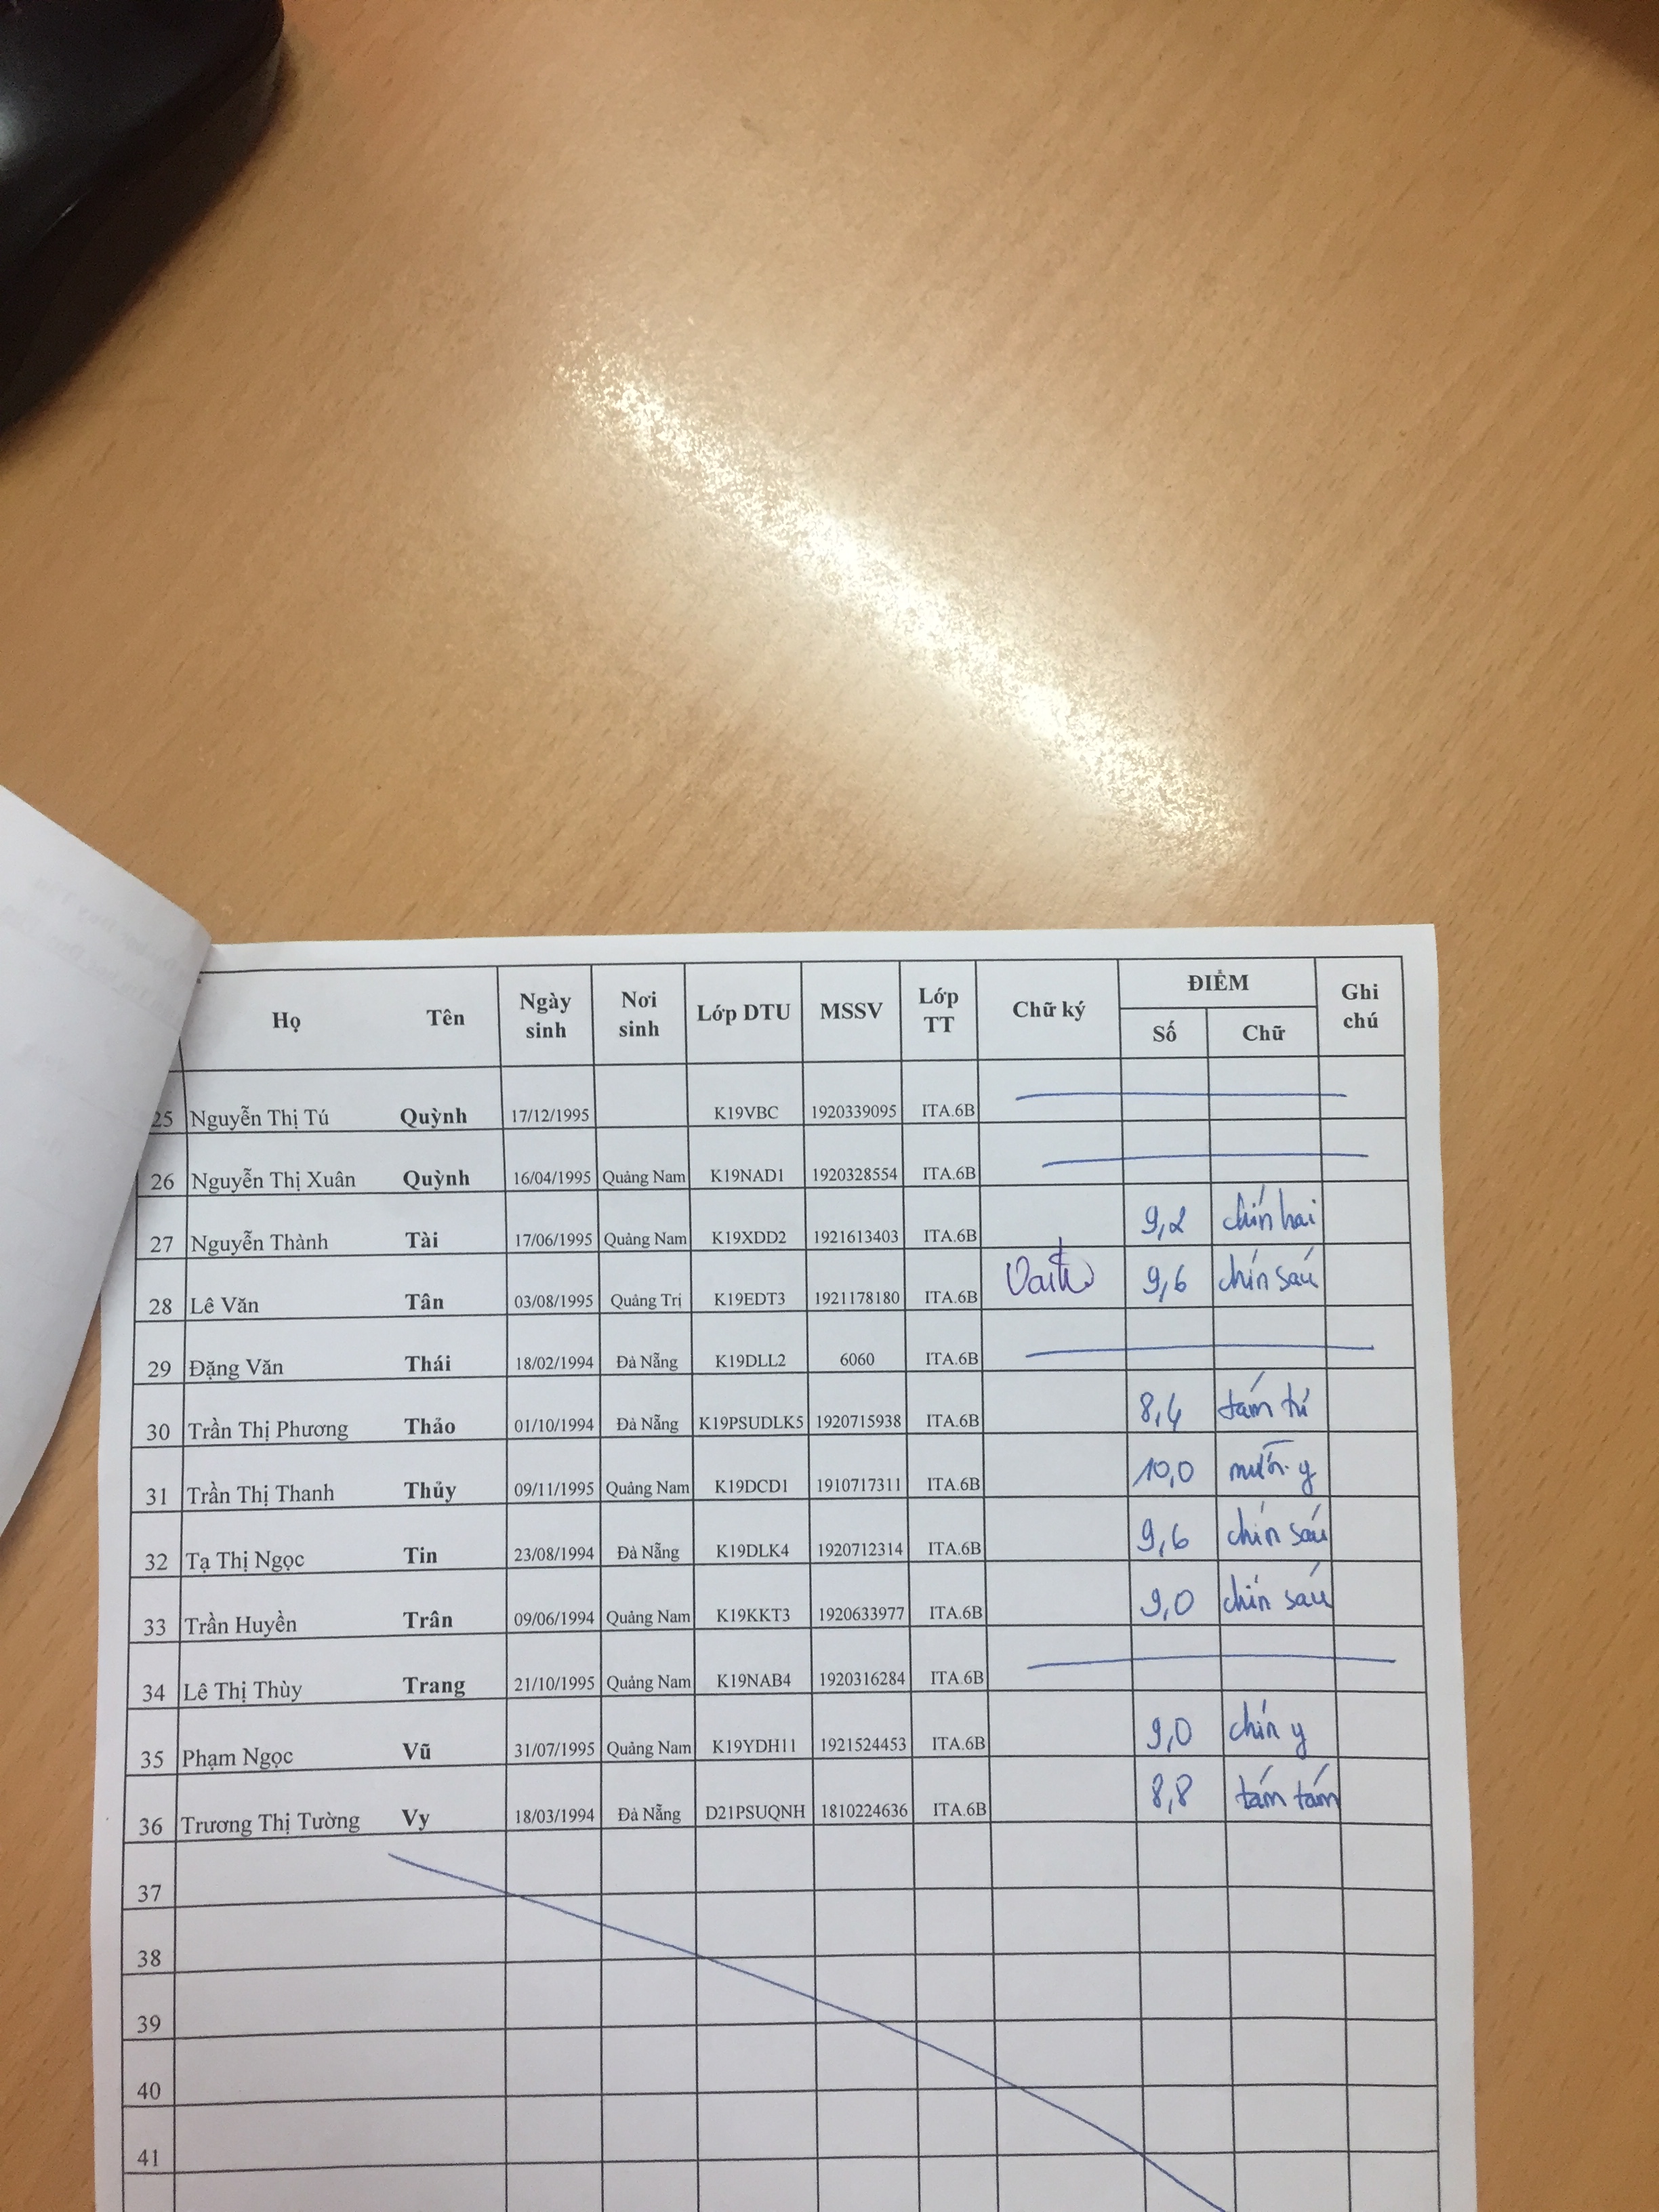 Họ Tên Ngày sinh Nơi sinh Lớp DTU MSSV Lớp TT Chữ ký ĐIỂM Ghi chú
Số Chữ
25 Nguyễn Thị Tú Quỳnh 17/12/1995 K19VBC 1920339095 ITA.6B
26 Nguyễn Thị Xuân Quỳnh 16/04/1995 Quảng Nam K19NAD1 1920328554 ITA.6B
27 Nguyễn Thành Tài 17/06/1995 Quảng Nam K19XDD2 1921613403 ITA.6B 9,2 chín hai
28 Lê Văn Tân 03/08/1995 Quảng Trị K19EDT3 1921178180 ITA.6B 9,6 chín sáu
29 Đặng Văn Thái 18/02/1994 Đà Nẵng K19DLL2 6060 ITA.6B
30 Trần Thị Phương Thảo 01/10/1994 Đà Nẵng K19PSUDLK5 1920715938 ITA.6B 8,4 tám tư
31 Trần Thị Thanh Thủy 09/11/1995 Quảng Nam K19DCD1 1910717311 ITA.6B 10,0 mười y
32 Tạ Thị Ngọc Tin 23/08/1994 Đà Nẵng K19DLK4 1920712314 ITA.6B 9,6 chín sáu
33 Trần Huyền Trân 09/06/1994 Quảng Nam K19KKT3 1920633977 ITA.6B 9,0 chín sáu
34 Lê Thị Thùy Trang 21/10/1995 Quảng Nam K19NAB4 1920316284 ITA.6B
35 Phạm Ngọc Vũ 31/07/1995 Quảng Nam K19YDH11 1921524453 ITA.6B 9,0 chín y
36 Trương Thị Tường Vy 18/03/1994 Đà Nẵng D21PSUQNH 1810224636 ITA.6B 8,8 tám tám
37
38
39
40
41